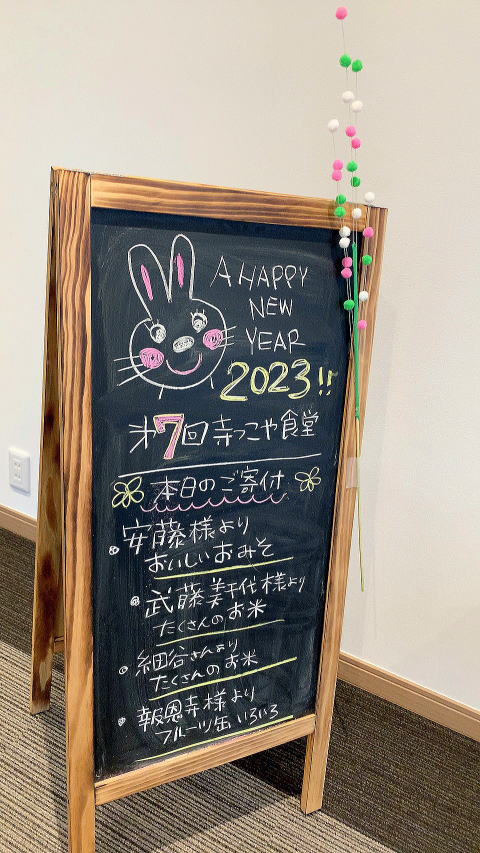 A HAPPY
NEW
YEAR
2023!!
㐧7回 寺っこや食堂
本日のご寄付
安藤様より
おいしいおみそ
武藤美千代様より
たくさんのお米
細谷さんより
たくさんのお米
報恩寺様より
フルーツ缶いろいろ